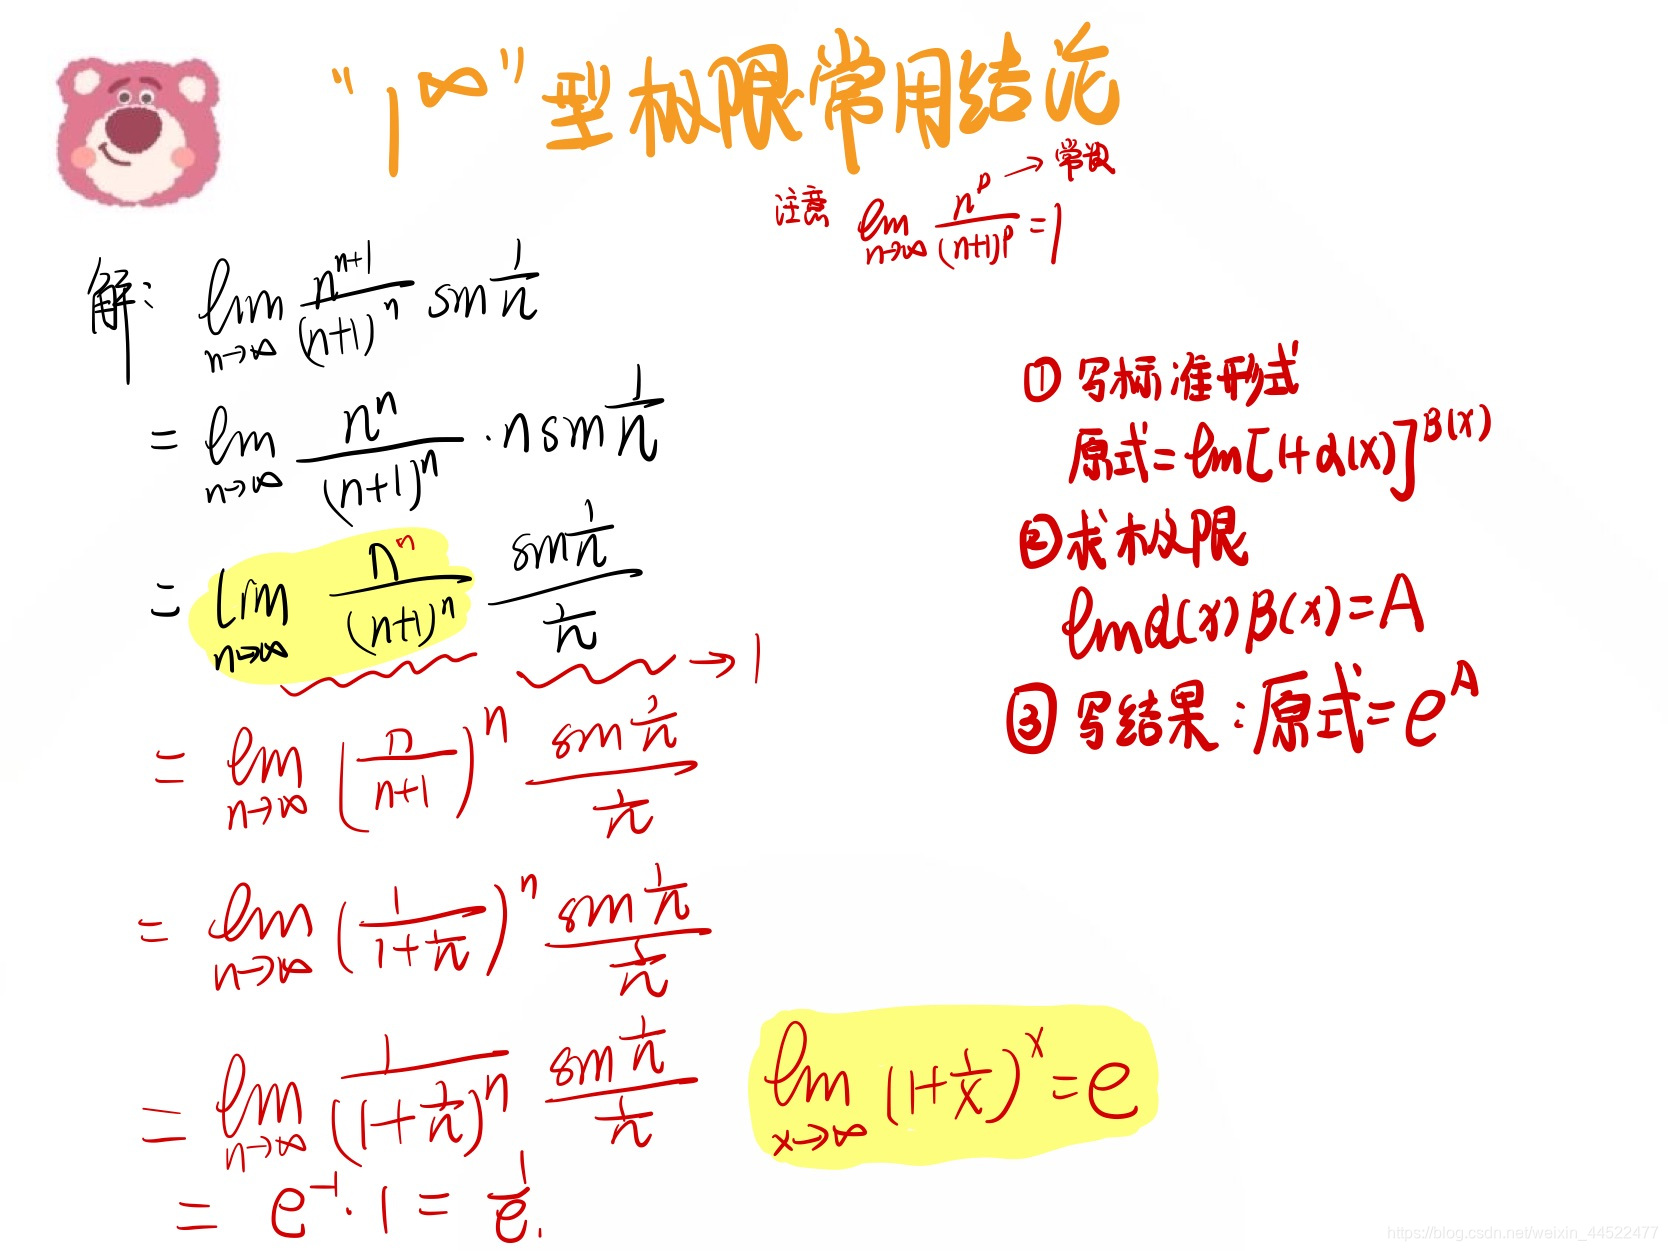 "1^∞"型极限常用结论
注意 lim_{n→∞} n^p/(n+1)^p = 1
p → 常数
解: lim_{n→∞} n^{n+1}/(n+1)^n sin 1/n
= lim_{n→∞} n^n/(n+1)^n · n sin 1/n
= lim_{n→∞} n^n/(n+1)^n (sin 1/n)/(1/n)
→ 1
= lim_{n→∞} (n/(n+1))^n (sin 1/n)/(1/n)
= lim_{n→∞} (1/(1+1/n))^n (sin 1/n)/(1/n)
= lim_{n→∞} 1/(1+1/n)^n (sin 1/n)/(1/n)
= e^{-1} · 1 = 1/e.
① 写标准形式
原式 = lim[1+α(x)]^{β(x)}
② 求极限
lim α(x) β(x) = A
③ 写结果: 原式 = e^A
lim_{x→∞} (1+1/x)^x = e
https://blog.csdn.net/weixin_44522477